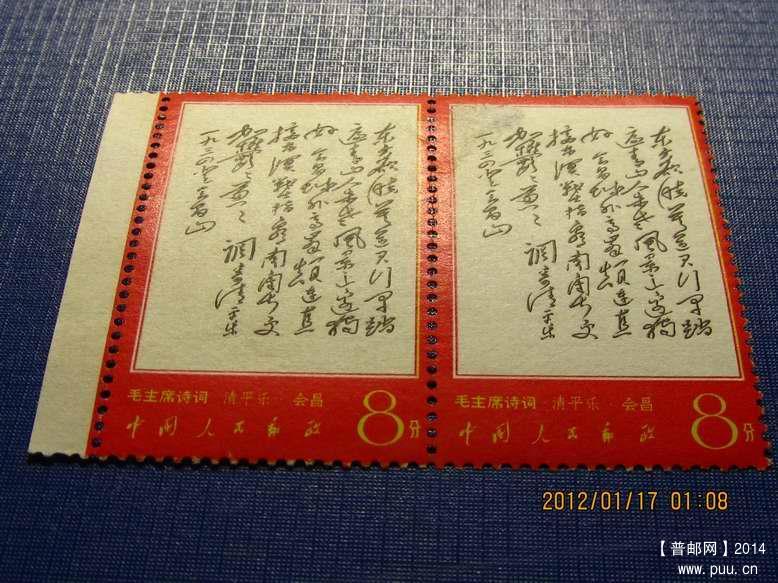 东方欲晓莫道君行早踏
遍青山人未老风景这边独
好会昌城外高峰颠连直
接东溟战士指看南粤更
郁郁葱葱 调寄清平乐
一九三四年 会昌山
毛主席诗词 清平乐·会昌
中国人民邮政 8分
东方欲晓莫道君行早踏
遍青山人未老风景这边独
好会昌城外高峰颠连直
接东溟战士指看南粤更
郁郁葱葱 调寄清平乐
一九三四年 会昌山
毛主席诗词 清平乐·会昌
中国人民邮政 8分
2012/01/17 01:08
【普邮网】2014
www.puu.cn